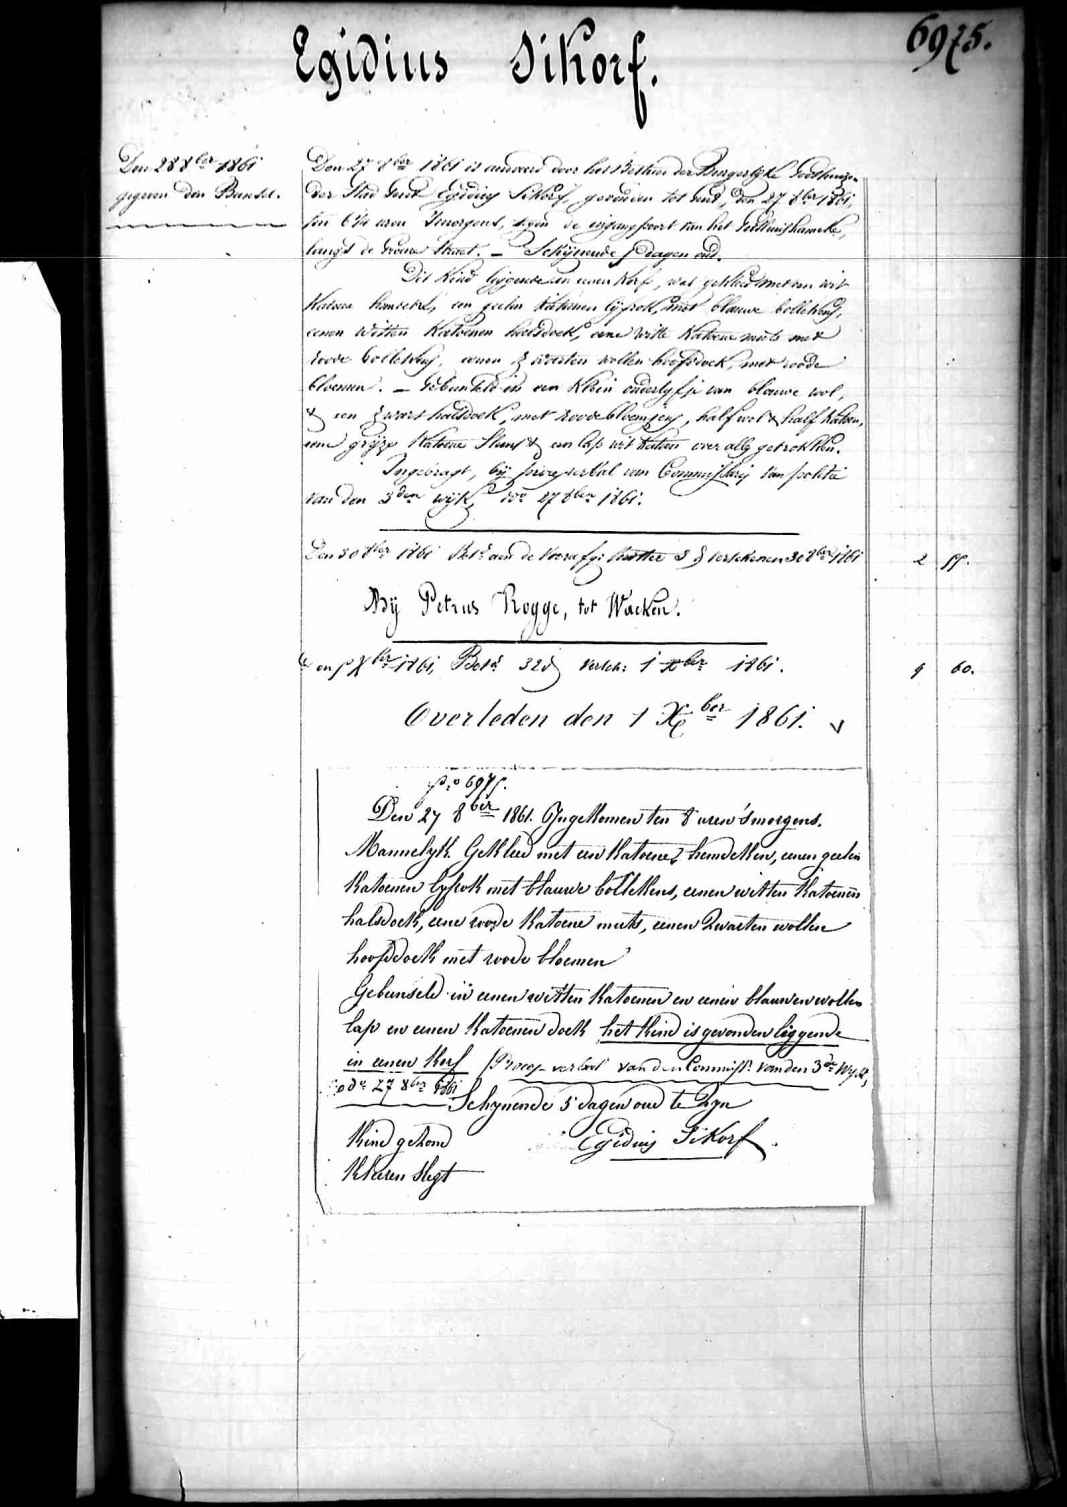 Egidius Sikorf.
6975.
Den 28 8ber 1861
gegeven den Bundel.
Den 27 8ber 1861 is aenveerd door het Bestier der Burgerlijke Godshuizen
der Stad Gent Egidius Sikorf, gevonden tot Gent, den 27 8ber 1861,
ten 6¼ uren 'smorgens, tegen de ingangpoort van het
langs de Groene Straet. — Schijnende 5 dagen oud.
Dit Kind liggende in eenen Korf, was gekleed met een wit
Katoen hemdeke, een geelen Katoenen lijfrok, met blauwe bollekens,
eenen witten Katoenen halsdoek, eene witte Katoene muts met
roode bollekens, eenen zwarten wollen hoofddoek, met roode
bloemen. — Gebundeld in een klein onderlyfje van blauwe wol,
& een zwart halsdoek, met roode bloemjens, half wol & half Katoen,
eene grijze Katoene & een lap wit Katoen over alles getrokken.
Ingebragt, bij proces verbal van Commissaris van politie
van den 3den wijk, 27 8ber 1861.
Den 30 8ber 1861 Bet. aen de 3 d. verschenen 30 8ber 1861
2 55.
Bij Petrus Rogge, tot Wacken.
Den 5 Xber 1861, Betd. 32 d. versch. 1 Xber 1861.
9 60.
Overleden den 1 Xber 1861.
No 6975.
Den 27 8ber 1861. Ingekomen ten 8 uren 'smorgens.
Mannelyk. Gekleed met een Katoene hemdeken, eenen geelen
Katoenen lyfrok met blauwe bollekens, eenen witten Katoenen
halsdoek, eene roode Katoene muts, eenen zwarten wollen
hoofddoek met roode bloemen
Gebunseld in eenen witten Katoenen en eenen blauwen wollen
lap en eenen Katoenen doek het Kind is gevonden liggende
in eenen Korf Proces-verbael van den Commiss. van den 3de Wyk,
27 8ber 1861
Schynende 5 dagen oud te Zyn
Kind gezond
Egidius Sikorf.
Kleeren Slegt